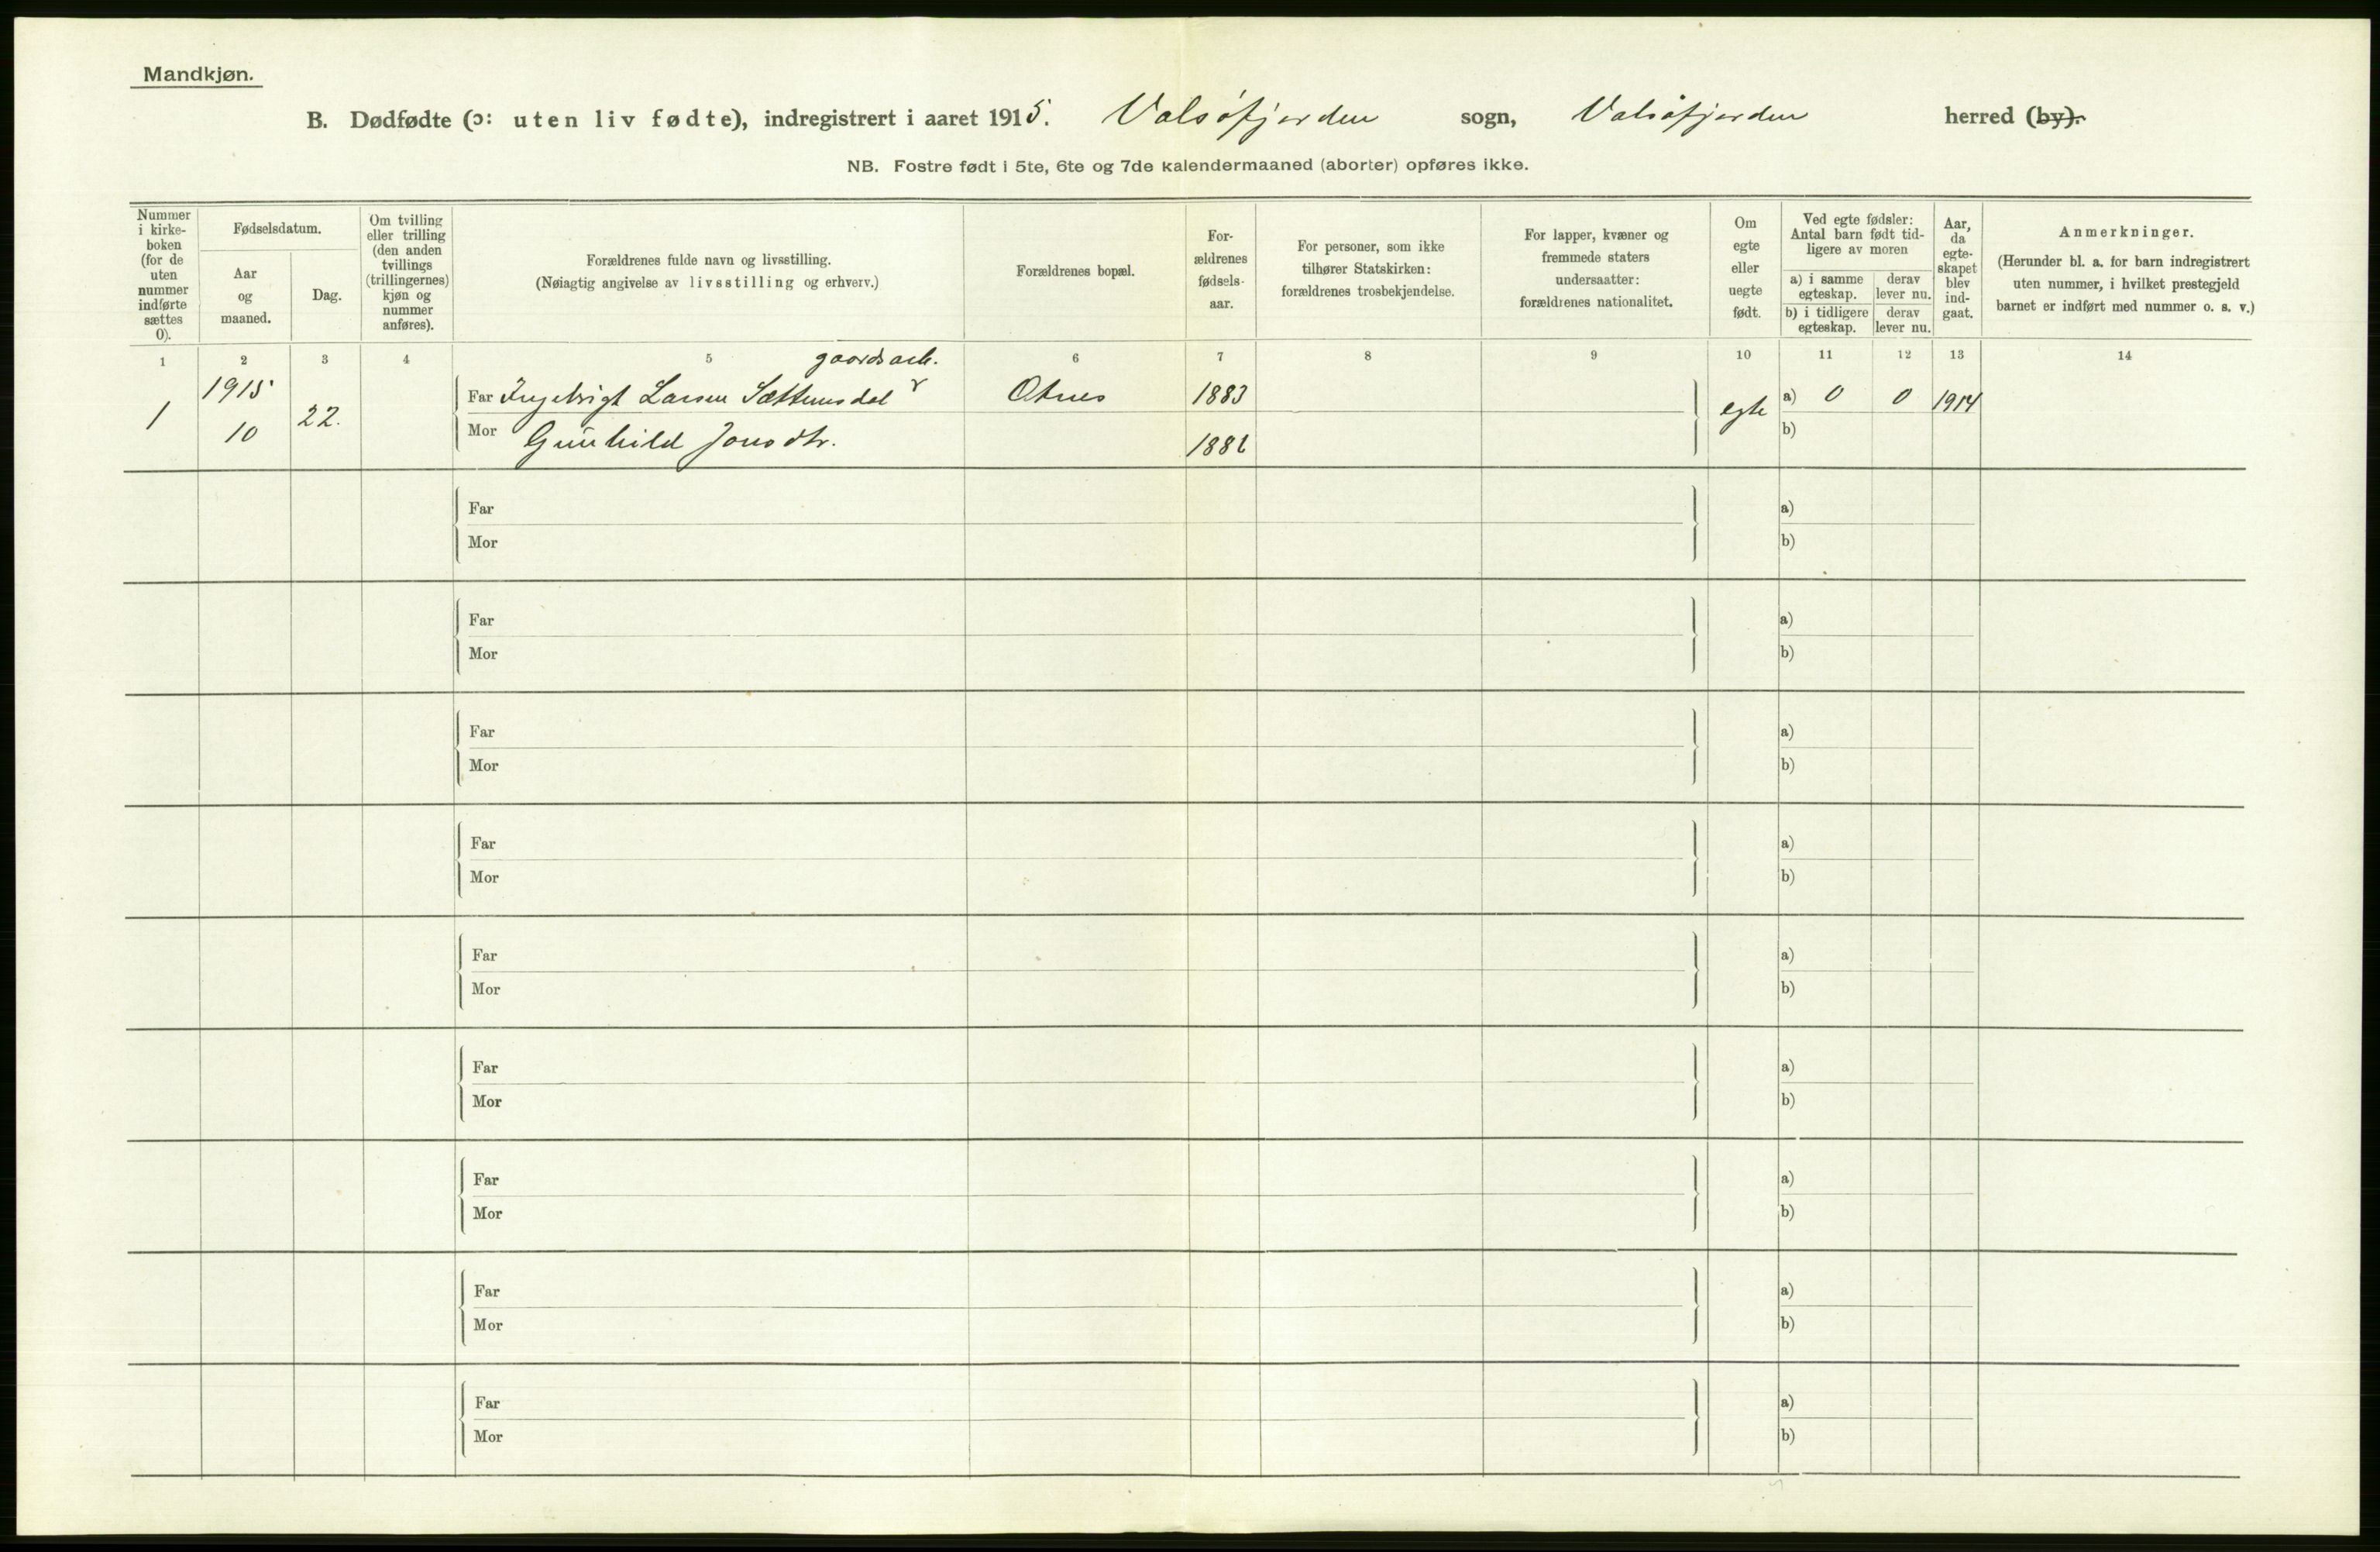 Mandkjøn.
B. Dødfødte (ɔ: uten liv fødte), indregistrert i aaret 1915. Valsøfjorden sogn, Valsøfjorden herred (by).
NB. Fostre født i 5te, 6te og 7de kalendermaaned (aborter) opføres ikke.
Nummer i kirke-boken (for de uten nummer indførte sættes 0).
Fødselsdatum.
Aar og maaned.
Dag.
Om tvilling eller trilling (den anden tvillings (trillingernes) kjøn og nummer anføres).
Forældrenes fulde navn og livsstilling.
(Nøiagtig angivelse av livsstilling og erhverv.)
Forældrenes bopæl.
For-ældrenes fødsels-aar.
For personer, som ikke tilhører Statskirken: forældrenes trosbekjendelse.
For lapper, kvæner og fremmede staters undersaatter: forældrenes nationalitet.
Om egte eller uegte født.
Ved egte fødsler: Antal barn født tid-ligere av moren
a) i samme egteskap.
derav lever nu.
b) i tidligere egteskap.
derav lever nu.
Aar, da egte-skapet blev ind-gaat.
Anmerkninger.
(Herunder bl. a. for barn indregistrert uten nummer, i hvilket prestegjeld barnet er indført med nummer o. s. v.)
1 2 3 4 5 6 7 8 9 10 11 12 13 14
gaardsarb.
1 1915 10 22.
Far Ingebrigt Larsen Sættemsdal Otnes 1883 egte a) 0 0 1914
Mor Gunhild Jonsdtr. b)
Far a)
Mor b)
Far a)
Mor b)
Far a)
Mor b)
Far a)
Mor b)
Far a)
Mor b)
Far a)
Mor b)
Far a)
Mor b)
Far a)
Mor b)
Far a)
Mor b)